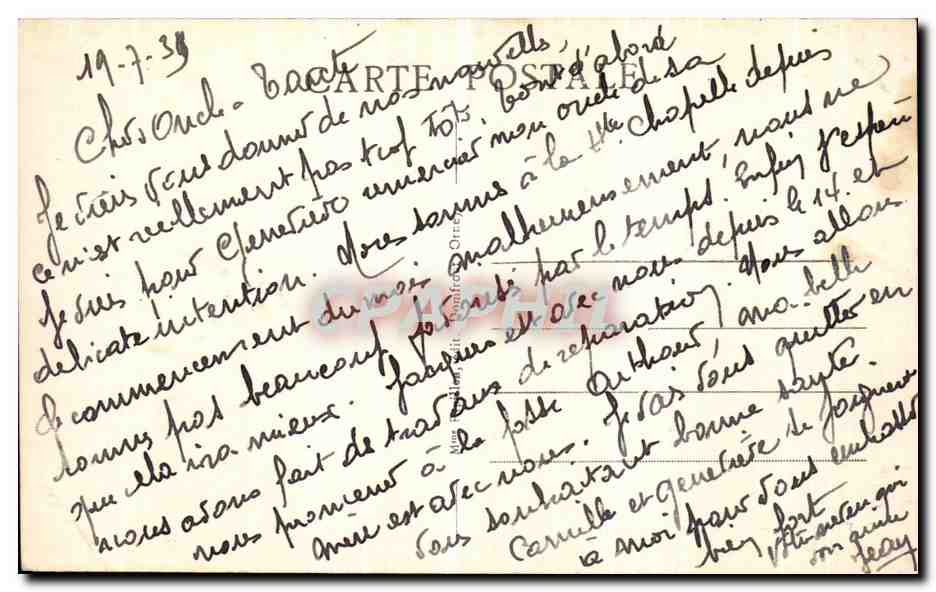 19-7-39
CARTE POSTALE
Chers Oncle - Tante
Je viens vous donner de nos nouvelles,
ce n'est réellement pas trop tôt, tout d'abord
Je suis pour Geneviève remercier mon oncle de sa
délicate intention. Nous sommes à la Chapelle depuis
le commencement du mois malheureusement, nous ne
sommes pas beaucoup favorisés par le temps. Enfin j'espère
que cela ira mieux. Jacques est avec nous depuis le 14. et
nous avons fait des travaux de réparation. Nous allons
nous promener à la fosse Arthour, ma belle
mère est avec nous. Je vais vous quitter en
vous souhaitant bonne santé.
Camille et Geneviève se joignent
à moi pour vous embrasser
bien fort
Votre neveu qui
vous aime
Jean
Mme Edit. Domfront Orne
CPAPHIL